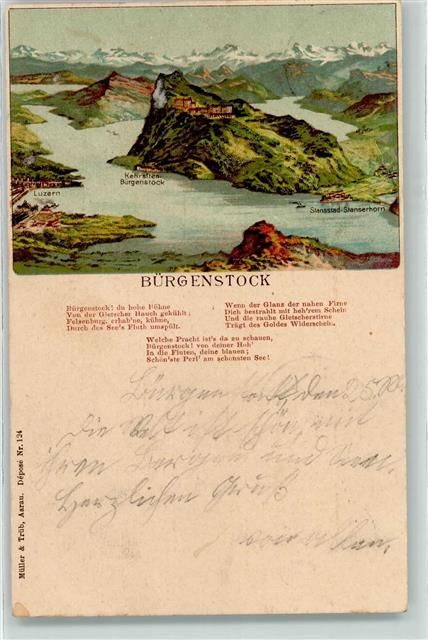 Kehrsiten-
Bürgenstock
Luzern
Stansstad-Stanserhorn
BÜRGENSTOCK
Bürgenstock! du hohe Bühne
Von der Gletscher Hauch gekühlt;
Felsenburg, erhab'ne, kühne,
Durch des See's Fluth umspült.
Wenn der Glanz der nahen Firne
Dich bestrahlt mit heh'rem Schein
Und die rauhe Gletscherstirne
Trägt des Goldes Widerschein.
Welche Pracht ist's da zu schauen,
Bürgenstock! von deiner Höh'
In die Fluten, deine blauen;
Schön'ste Perl' am schönsten See!
Bürgenstock den
Die Welt ist schön, mit
ihren Bergen und Seen.
Herzlichen Gruß
von allen.
Müller & Trüb, Aarau. Déposé Nr. 124